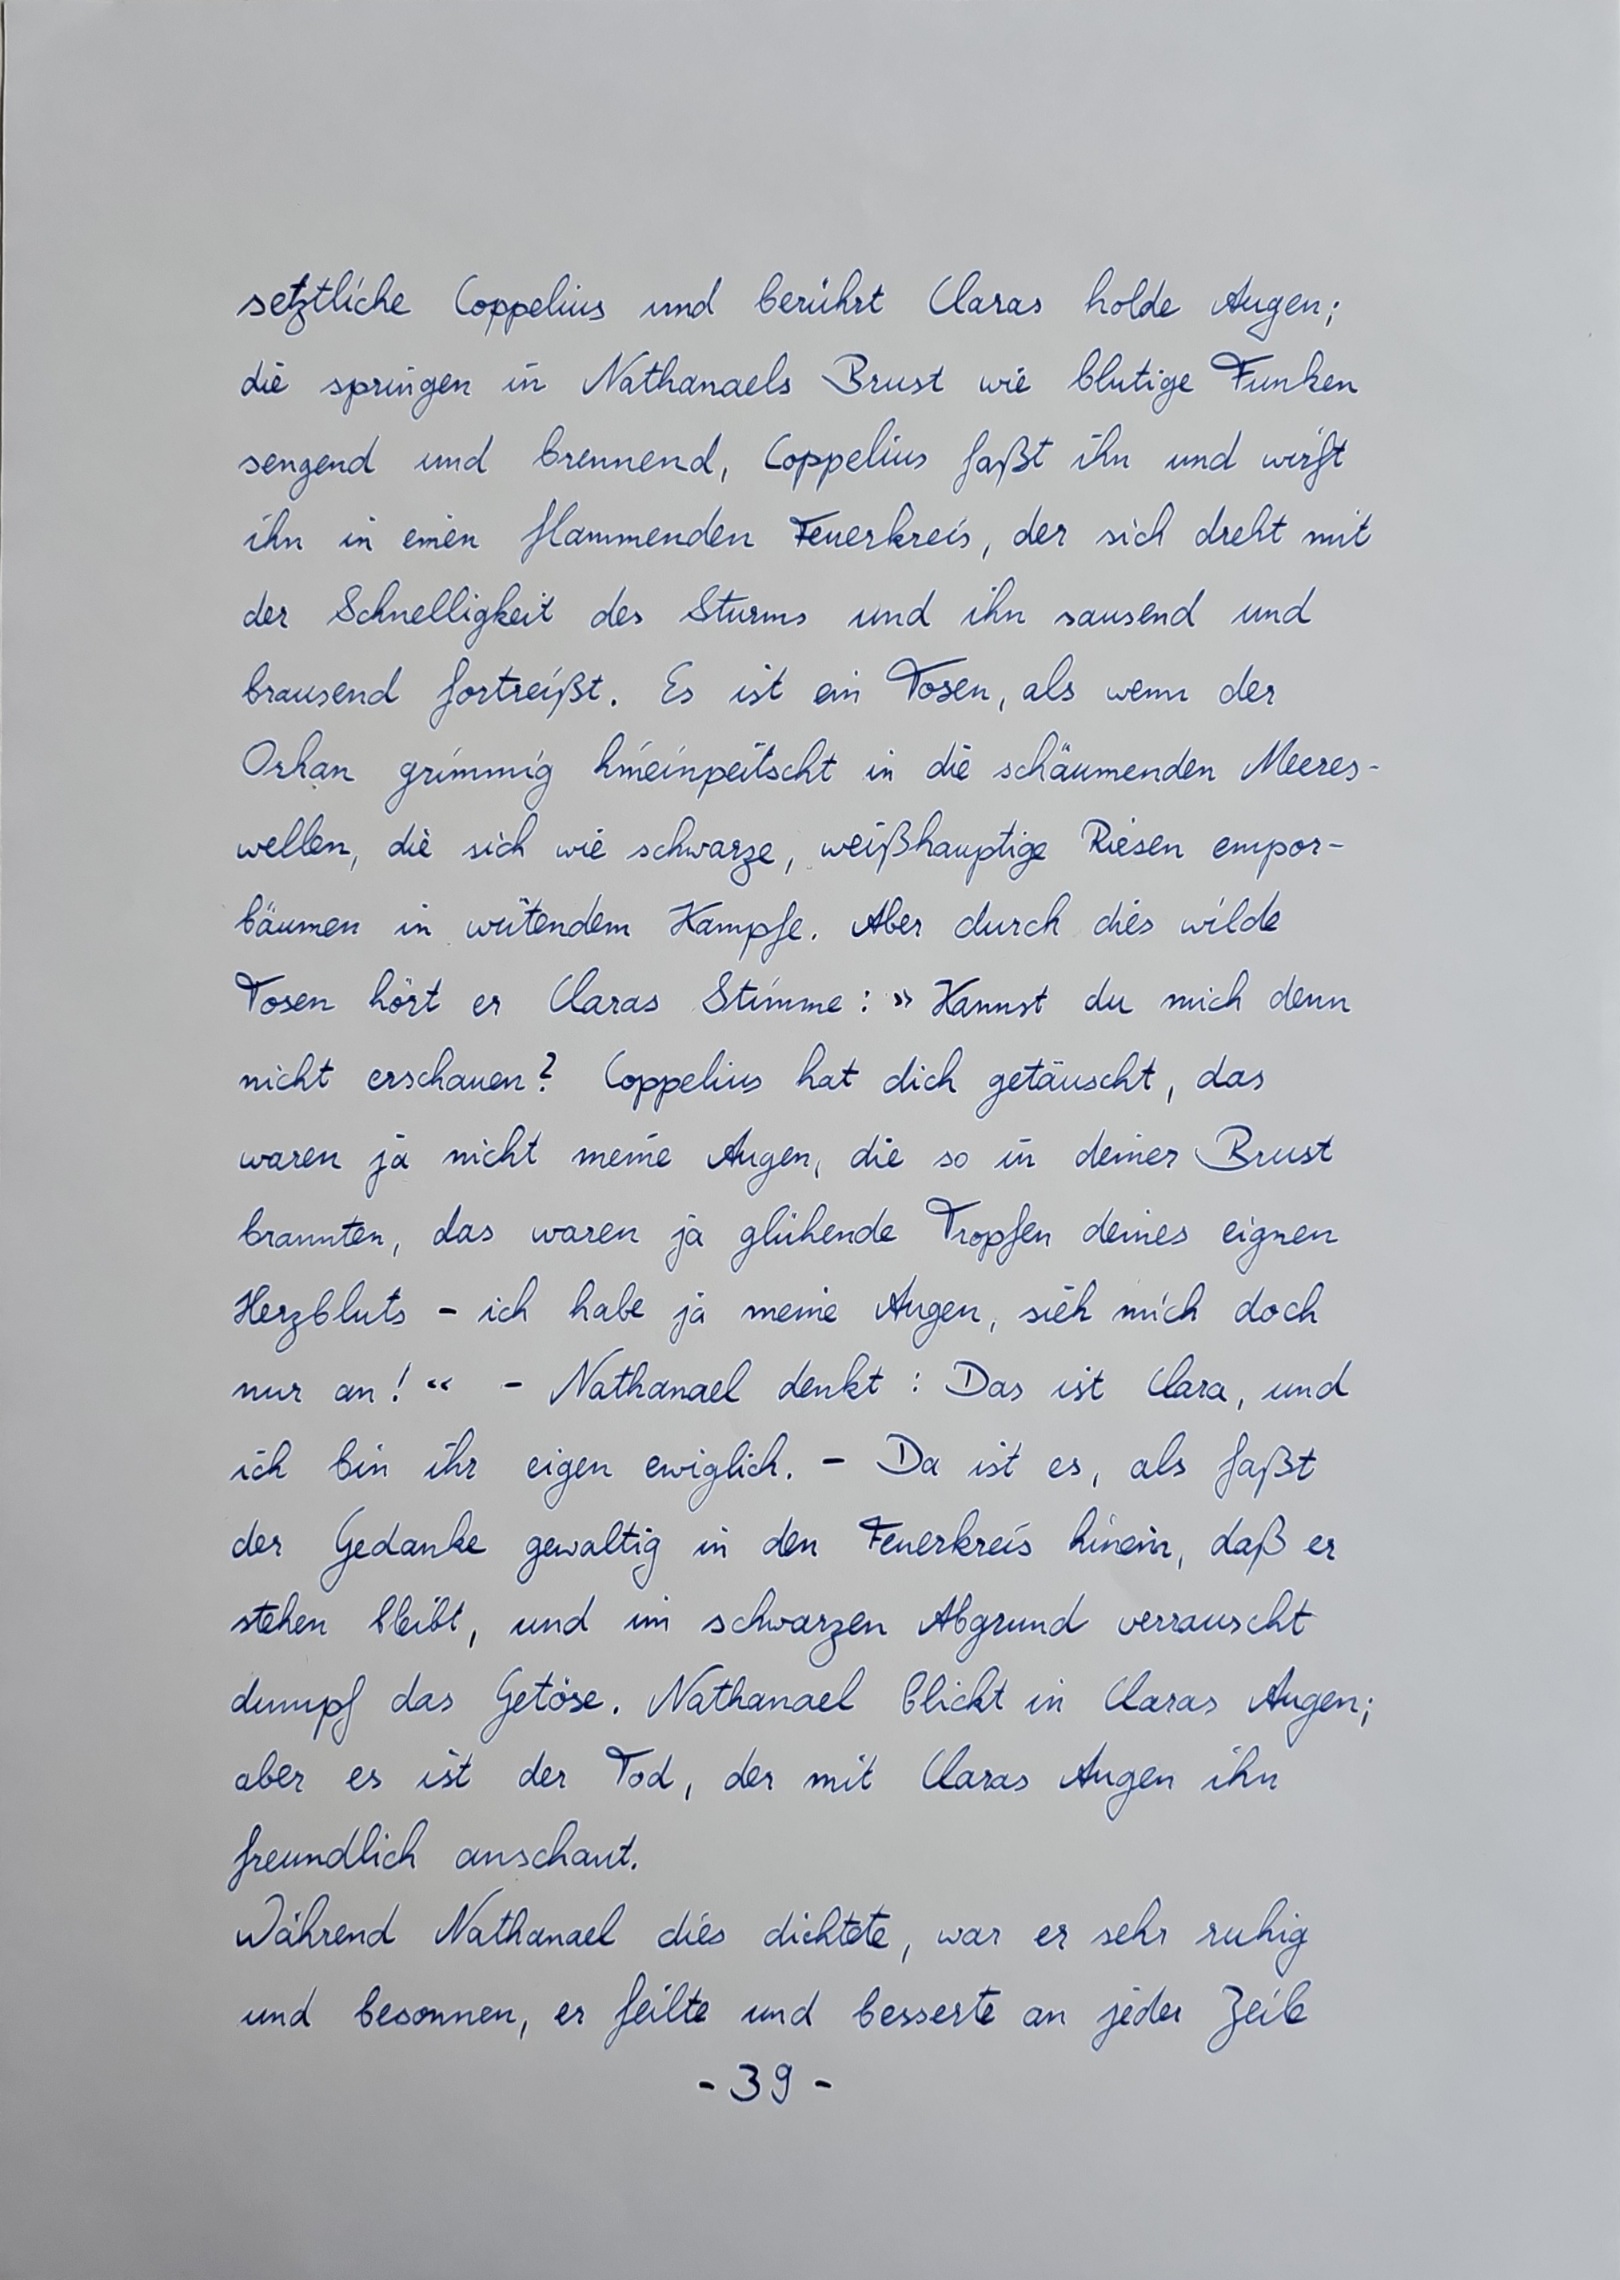 setztliche Coppelius und berührt Claras holde Augen;
die springen in Nathanaels Brust wie blutige Funken
sengend und brennend, Coppelius faßt ihn und wirft
ihn in einen flammenden Feuerkreis, der sich dreht mit
der Schnelligkeit des Sturms und ihn sausend und
brausend fortreißt. Es ist ein Tosen, als wenn der
Orkan grimmig hineinpeitscht in die schäumenden Meeres-
wellen, die sich wie schwarze, weißhauptige Riesen empor-
bäumen in wütendem Kampfe. Aber durch dies wilde
Tosen hört er Claras Stimme: »Kannst du mich denn
nicht erschauen? Coppelius hat dich getäuscht, das
waren ja nicht meine Augen, die so in deiner Brust
brannten, das waren ja glühende Tropfen deines eignen
Herzbluts – ich habe ja meine Augen, sieh mich doch
nur an!« – Nathanael denkt: Das ist Clara, und
ich bin ihr eigen ewiglich. – Da ist es, als faßt
der Gedanke gewaltig in den Feuerkreis hinein, daß er
stehen bleibt, und im schwarzen Abgrund verrauscht
dumpf das Getöse. Nathanael blickt in Claras Augen;
aber es ist der Tod, der mit Claras Augen ihn
freundlich anschaut.
Während Nathanael dies dichtete, war er sehr ruhig
und besonnen, er feilte und besserte an jeder Zeile
- 39 -